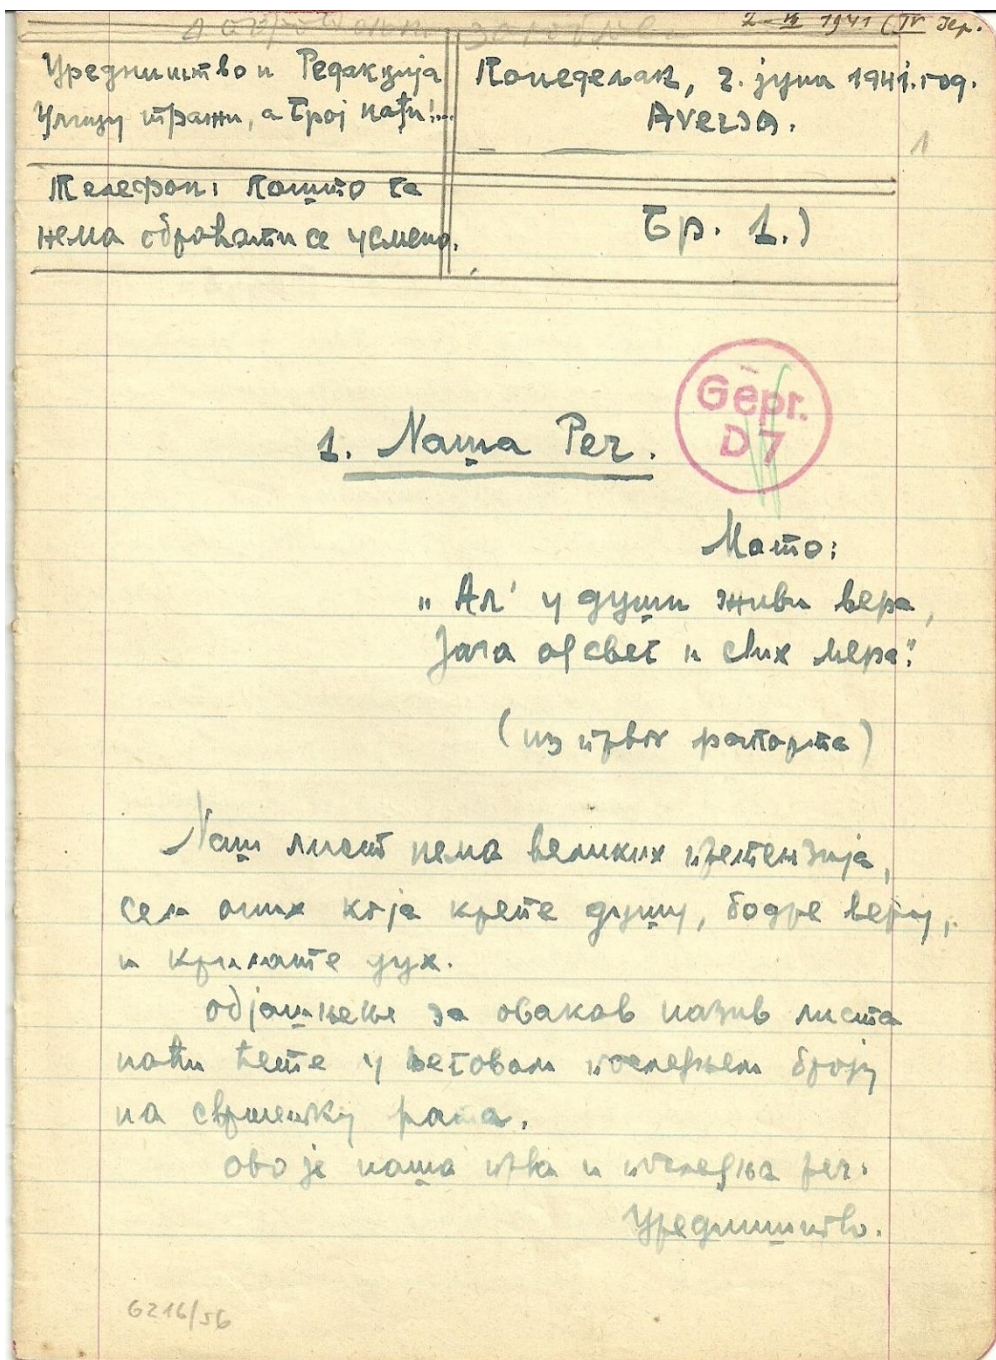 2-VI 1941 (IV Јер.
Уредништво и Редакција
Улицу тражи, а број нађи!...
Понедељак, 2. јуна 1941. год.
Aversa.
1
Телефон: пошто га
нема обраћати се усмено.
Бр. 1.)
Gepr.
D 7
1. Наша Реч.
Мото:
„Ал' у души живи вера,
Јача од свег и свих мера."
(из првог рапорта)
Наш лист нема великих претензија,
сем оних која крепе душу, бодре веру,
и крилате дух.
Објашњење за овакав назив листа
наћи ћете у његовом последњем броју
на свршетку рата.
Ово је наша прва и последња реч.
Уредништво.
6216/56